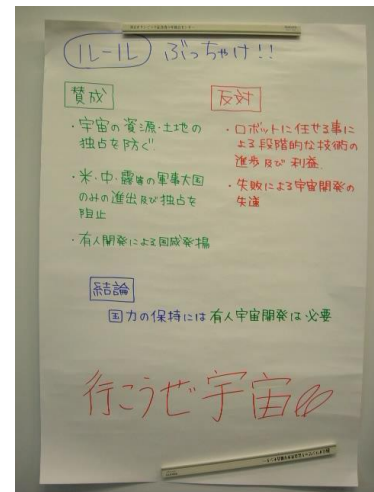 ルール ぶっちゃけ!!
賛成
・宇宙の資源・土地の
独占を防ぐ
・米・中・露等の軍事大国
のみの進出及び独占を
阻止
・有人開発による国威発揚
反対
・ロボットに任せる事に
よる段階的な技術の
進歩及び利益
・失敗による宇宙開発の
失速
結論
国力の保持には有人宇宙開発は必要
行こうぜ宇宙